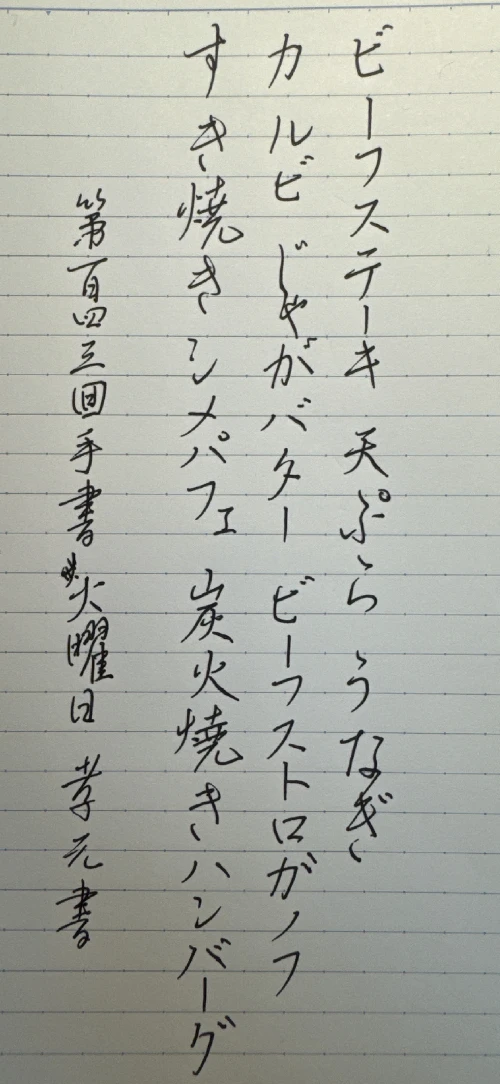 ビーフステーキ 天ぷら うなぎ
カルビ じゃがバター ビーフストロガノフ
すき焼き シメパフェ 炭火焼きハンバーグ
第百四三回手書 火曜日 孝元書